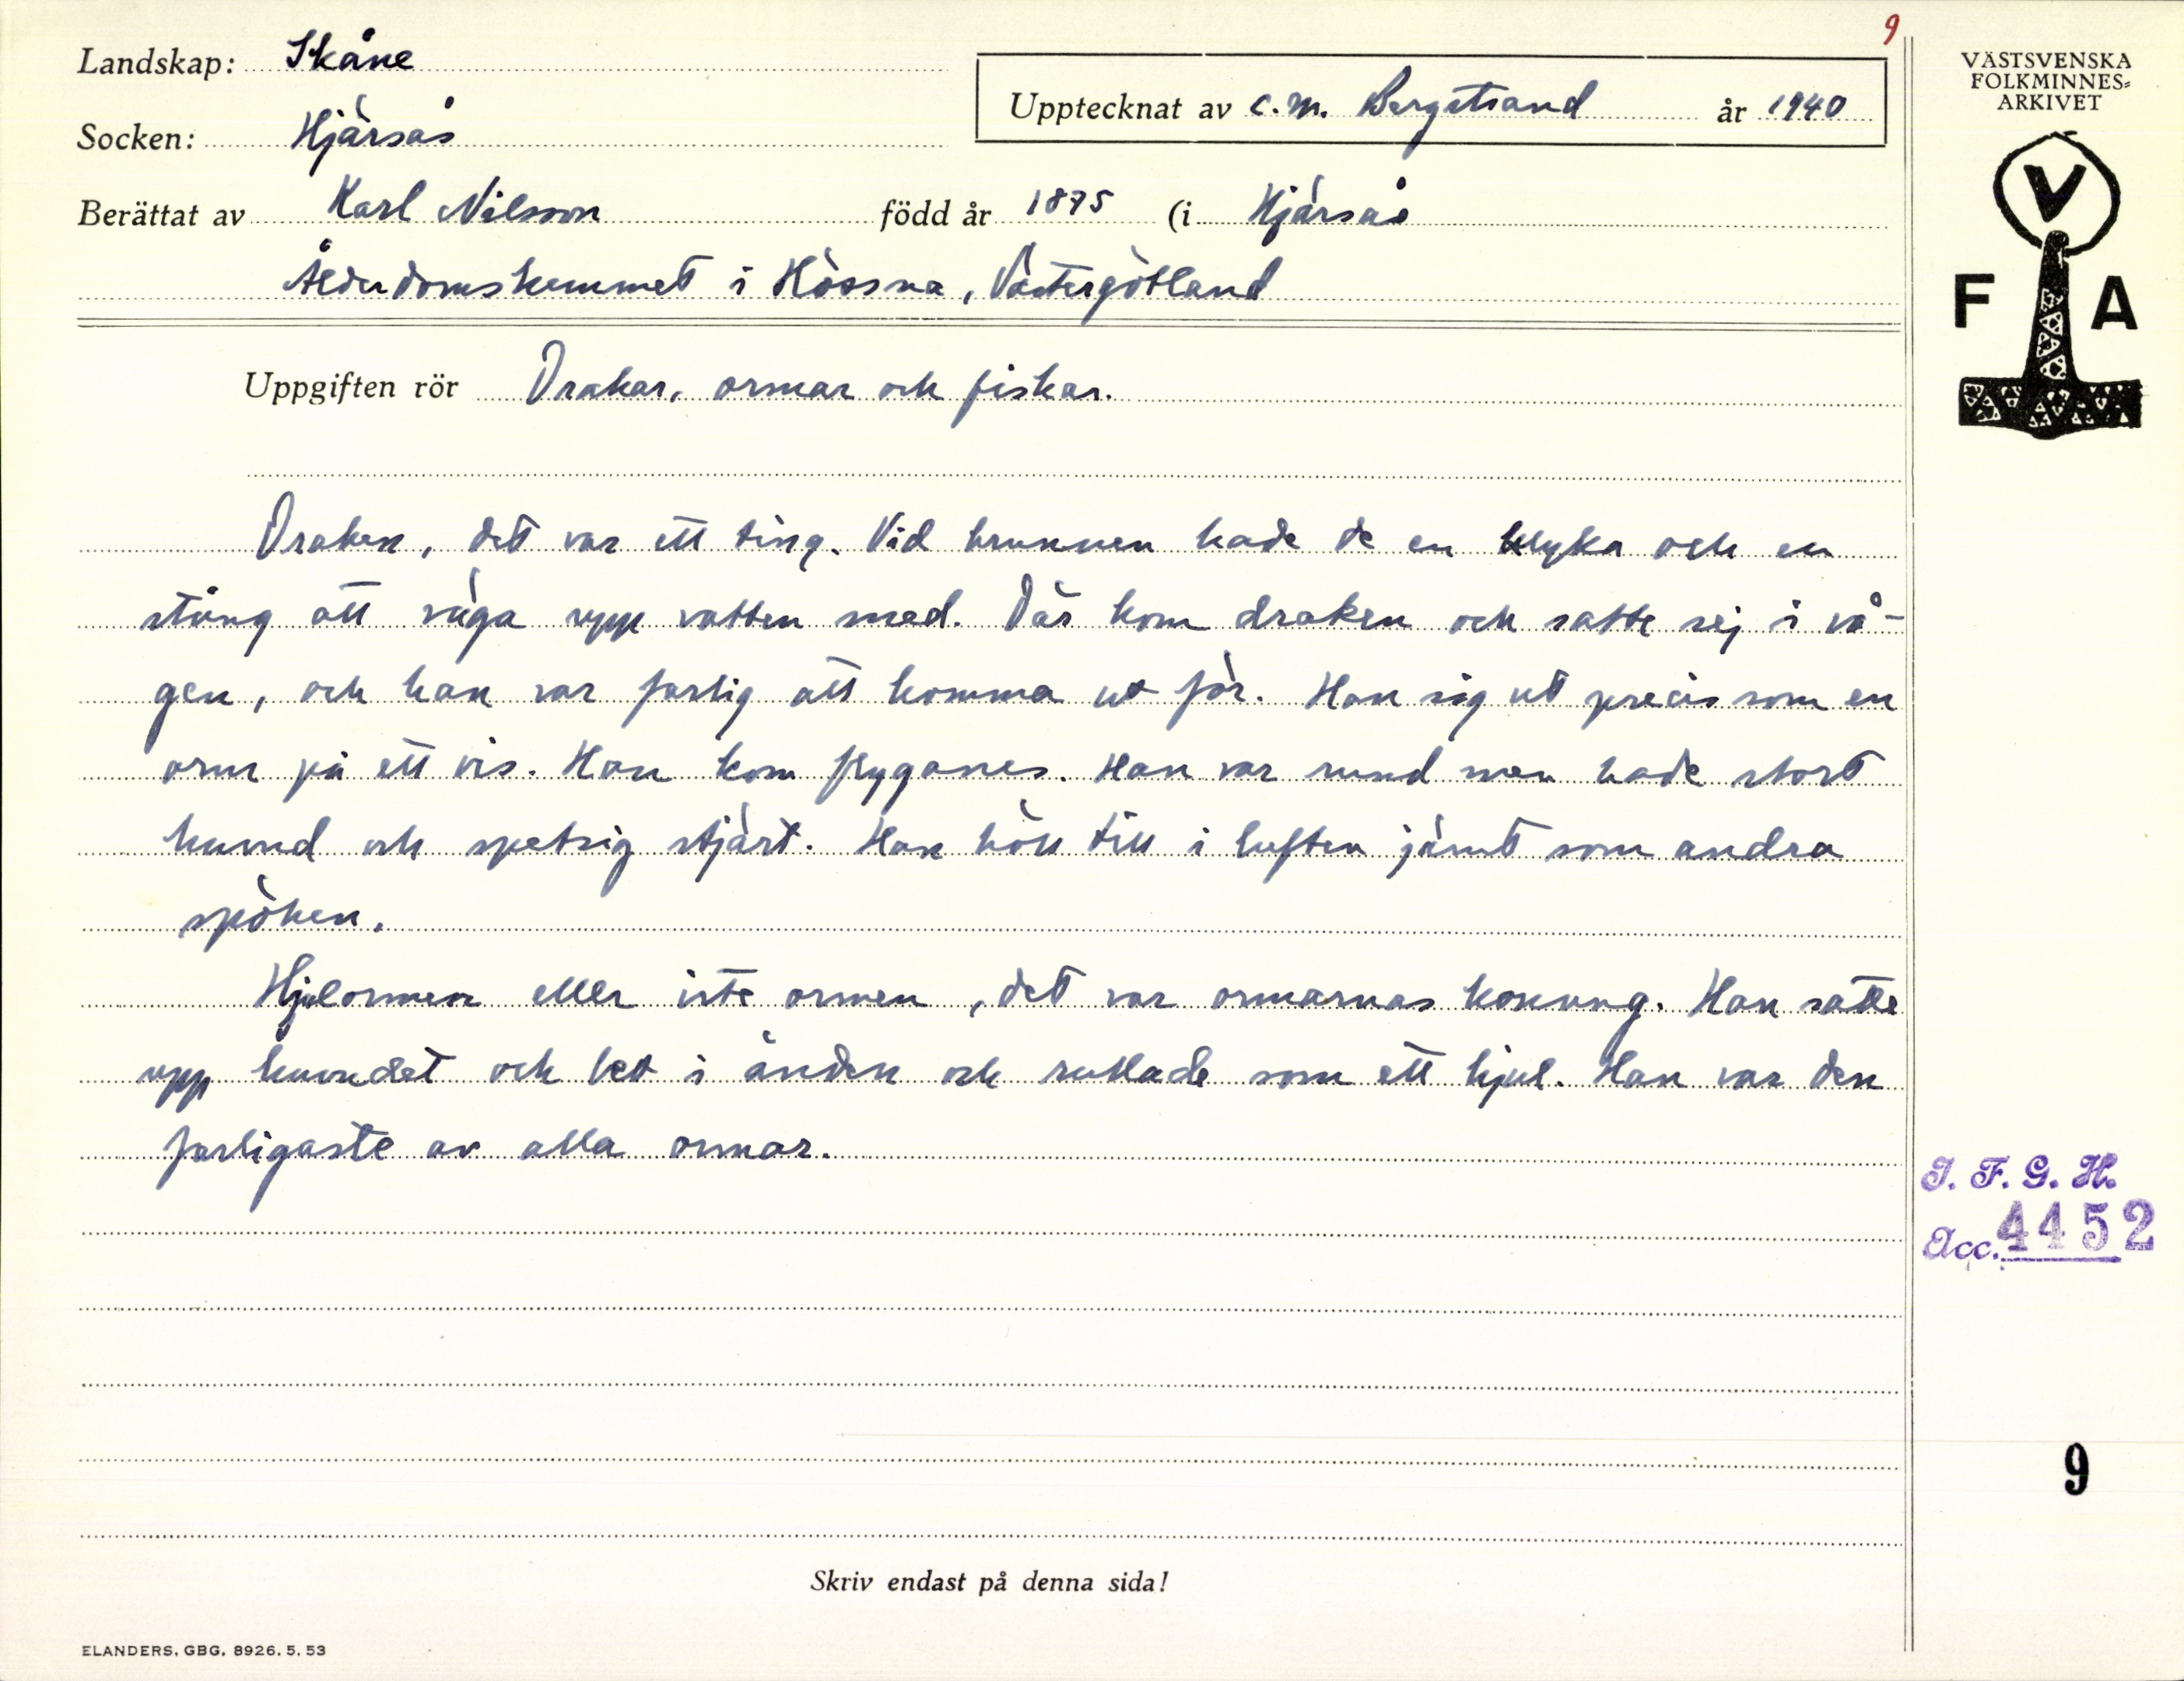 9
Landskap: Skåne
Socken: Hjärsås
Upptecknat av C. M. Bergstrand år 1940
Berättat av Karl Nilsson född år 1875 (i Hjärsås
Ålderdomshemmet i Hössna, Västergötland
Uppgiften rör Drakar, ormar och fiskar.
Draken, det var ett ting. Vid brunnen hade de en klyka och en
stång att väga upp vatten med. Där kom draken och satte sej i vå-
gen, och han var farlig att komma ut för. Han såg ut precis som en
orm på ett vis. Han kom flyganes. Han var rund men hade stort
huvud och spetsig stjärt. Han höll till i luften jämt som andra
spöken.
Hjulormen eller iste ormen, det var ormarnas konung. Han satte
upp huvudet och bet i änden och rullade som ett hjul. Han var den
farligaste av alla ormar.
Skriv endast på denna sida!
ELANDERS, GBG. 8926. 5. 53
VÄSTSVENSKA
FOLKMINNES-
ARKIVET
V
F A
I. F. G. H.
Acc. 4452
9